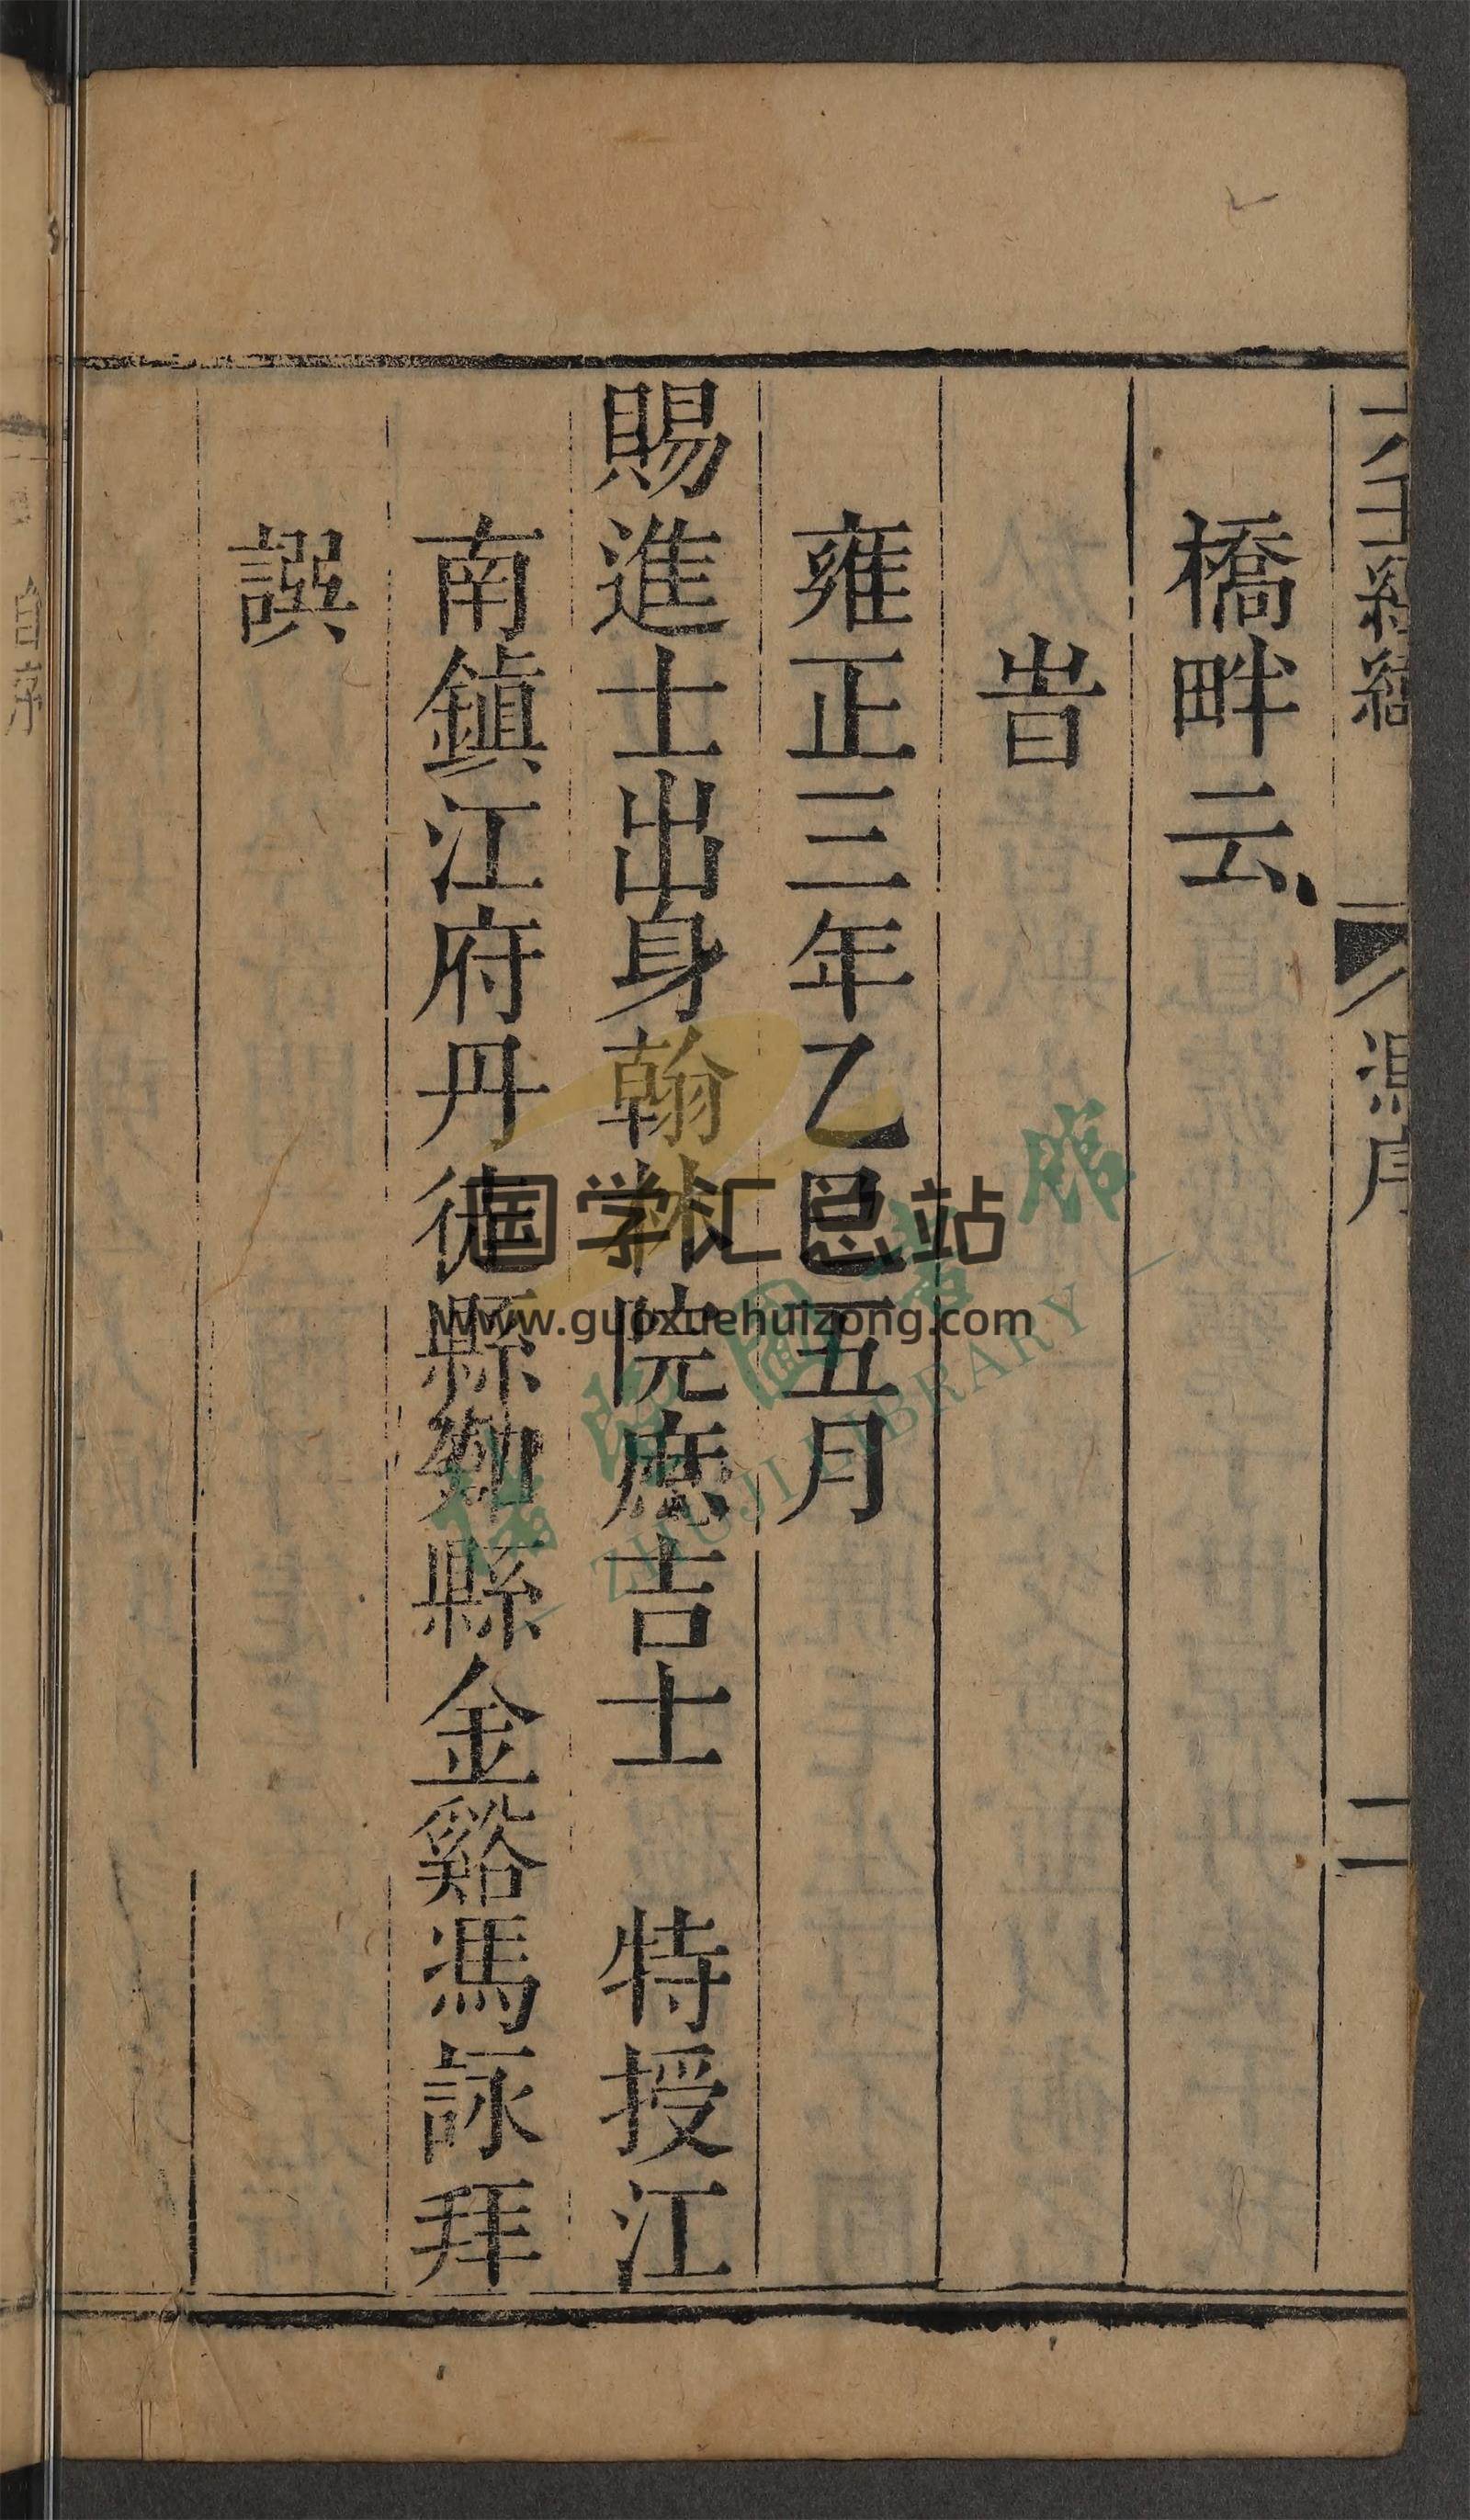 橋畔云、
旹
雍正三年乙巳五月
賜進士出身翰林院庶吉士 特授江
南鎮江府丹徒縣知縣金谿馮詠拜
譔
二
自序
国学汇总站
www.guoxuehuizong.com
ZHUJI LIBRARY